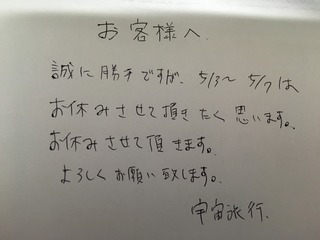 お客様へ.
誠に勝手ですが、5/3～5/7は
お休みさせて頂きたく思います。
お休みさせて頂きます。
よろしくお願い致します。
宇宙旅行.